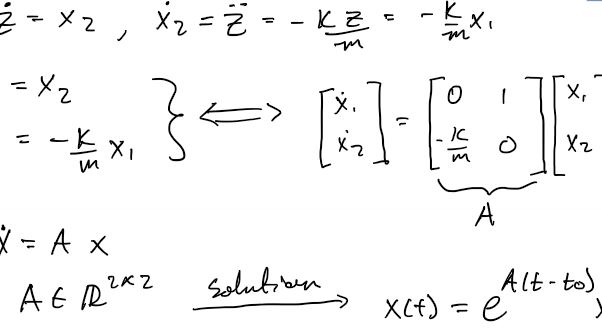 ż = x₂ , ẋ₂ = z̈ = - K z/m = - K/m x₁
= x₂
= - K/m x₁ } ⟺ [ẋ₁ ẋ₂] = [0 1 -K/m 0] [x₁ x₂
A
ẋ = A x
A ∈ ℝ²ˣ² solution → x(t) = e^{A(t-t₀)}